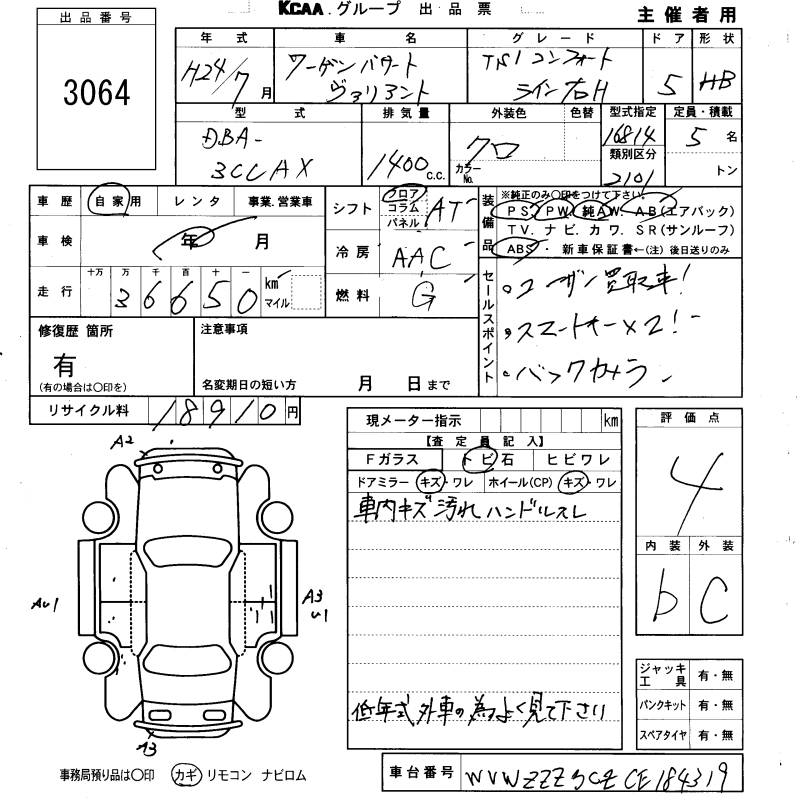 KCAA.グループ 出品票
主催者用
出品番号
3064
年式 車名 グレード ドア 形状
H24/7月 ワーゲンパサート ヴァリアント TSI コンフォートライン右H 5 HB
型式 排気量 外装色 色替 型式指定 定員・積載
DBA-3CCAX 1400 C.C. クロ カラーNo. 16814 類別区分 2101 5名 トン
車歴 自家用 レンタ 事業.営業車
車検 年 月
走行 十万 万 千 百 十 一 36650 km マイル
シフト フロア コラム パネル AT
冷房 AAC
燃料 G
装備品 ※純正のみ○印をつけて下さい。
PS. PW. 純AW. AB(エアバック)
TV. ナビ. カワ. SR(サンルーフ)
ABS・ 新車保証書←(注) 後日送りのみ
セールスポイント
・ユーザー買取車!
・スマートキー×2!
・バックカメラ
修復歴 箇所
有
(有の場合は○印を)
注意事項
名変期日の短い方 月 日まで
リサイクル料 18910円
現メーター指示 km
【査定員記入】
Fガラス トビ石 ヒビワレ
ドアミラー キズ・ワレ ホイール(CP) キズ・ワレ
車内キズ 汚れ ハンドルスレ
低年式 外車の為よく見て下さい
評価点
4
内装 外装
b C
A2
AU1
A3
U1
A3
ジャッキ工具 有・無
パンクキット 有・無
スペアタイヤ 有・無
事務局預り品は○印 カギ リモコン ナビロム
車台番号 WVWZZZ3CZCE184319